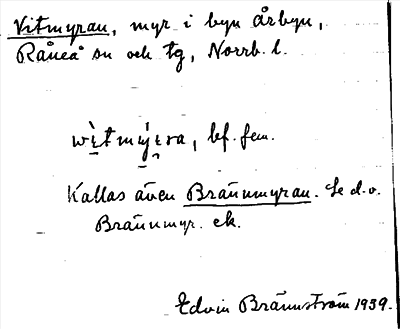 Vitmyran, myr i byn Årbyn,
Råneå sn och tg, Norrb. l.
wìtmýɩra, bf. fem.
Kallas även Brännmyran. Se d.o.
Brännmyr. ek.
Edvin Brännström 1939.